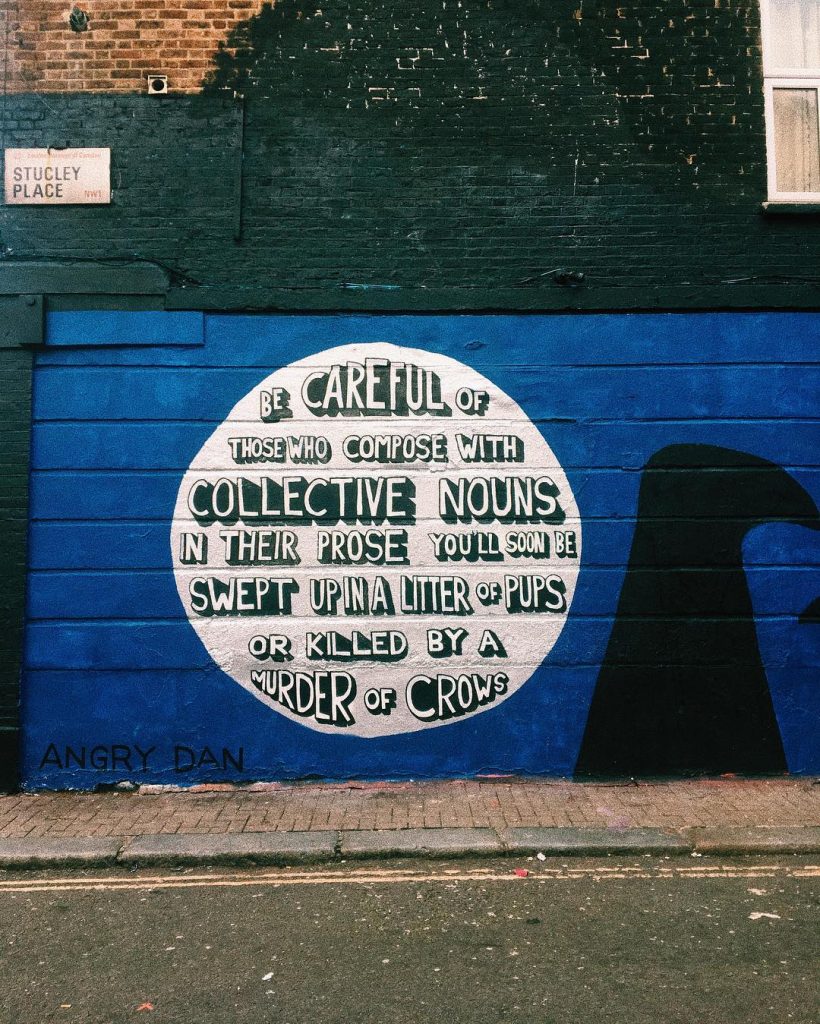 London Borough of Camden
STUCLEY
PLACE NW1
BE CAREFUL OF
THOSE WHO COMPOSE WITH
COLLECTIVE NOUNS
IN THEIR PROSE YOU'LL SOON BE
SWEPT UP IN A LITTER OF PUPS
OR KILLED BY A
MURDER OF CROWS
ANGRY DAN